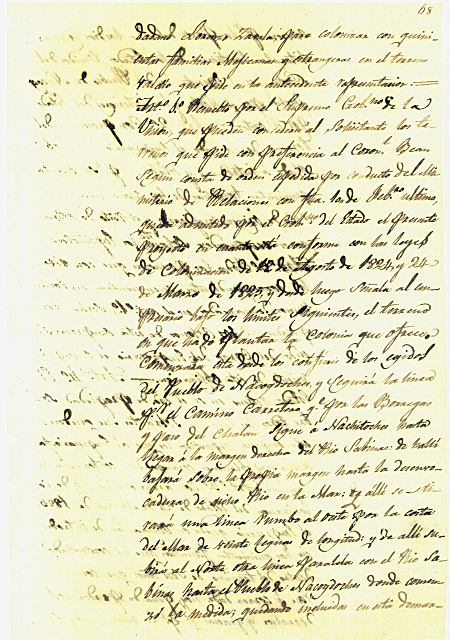 68
dadno Lorenzo Zavala, para colonizar con quini-
entas familias Mejicanas y estrangeras en el terreno
valdio que pide en la antecedente representacion.
Art.º 1.º Resuelto por el Supremo Gob.no de la
Union, que pueden concederse al Solicitante los te-
rrenos que pide con preferencia al Coron.l Bean
segun consta de orden espedida por conducto del Mi-
nisterio de Relaciones con fha. 1.o de Feb.ro ultimo,
queda admitido por el Gob.no del Estado el presente
Proyecto en cuanto está conforme con las leyes
de Colonizacion de 18 de Agosto de 1824, y 24
de Marzo de 1825, y desde luego señala al em-
presario bajo los limites siguientes, el terreno
en que ha de plantar la Colonia que ofrece.
Comenzará ésta desde los confines de los egidos
del Pueblo de Nacogdoches, y seguirá la linea
p.r el Camino Carretero q.e por las Borregas
y paso del Chalan sigue á Nachitoches hasta
llegar á la margen derecha del Rio Sabinas: de hallí
bajará sobre la propia margen hasta la desembo-
cadura de dicho Rio en la Mar: de allí se ti-
rará una linea rumbo al Oeste por la costa
del Mar de veinte leguas de longitud: y de allí su-
birá al Norte otra linea paralela con el Rio Sa-
binas hasta el Pueblo de Nacogdoches donde comen-
zó la medida; quedando incluidas en esta demar-